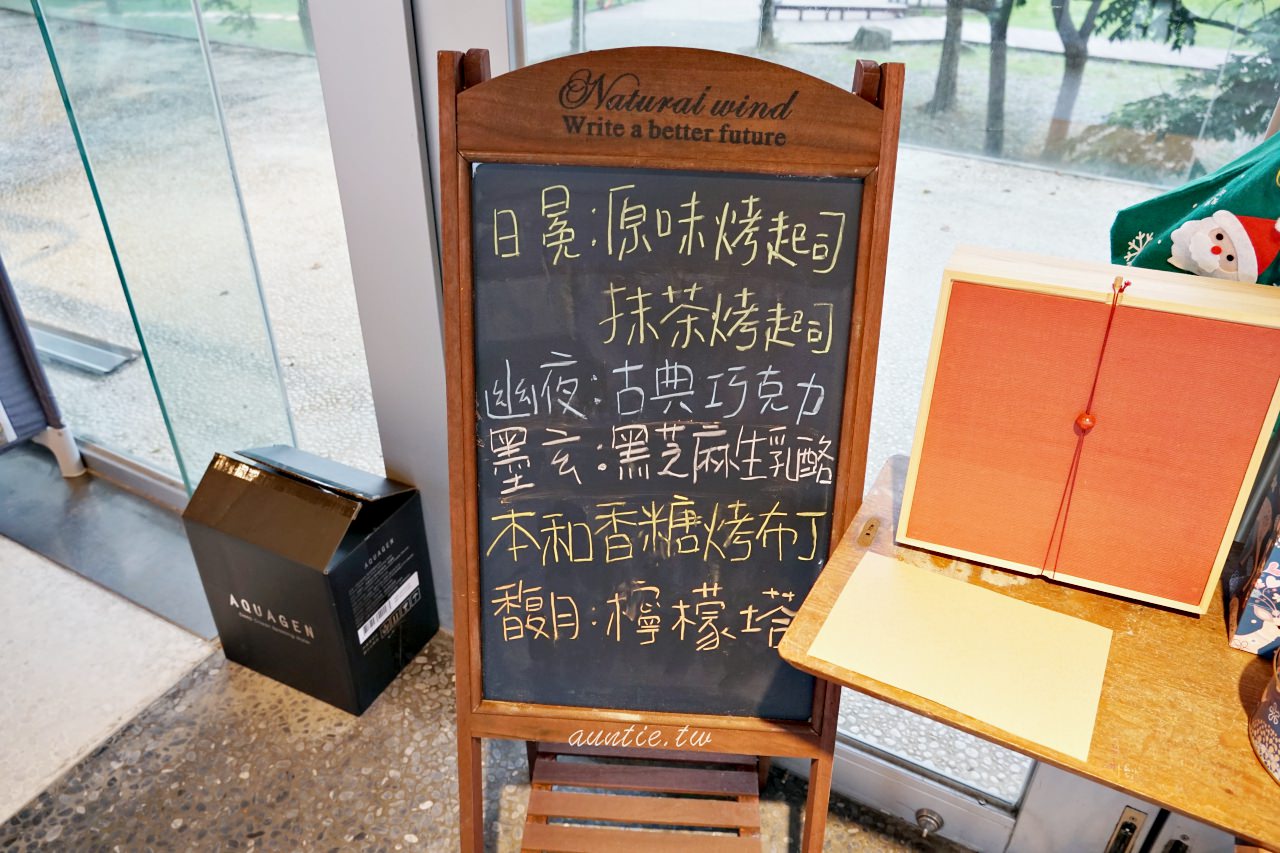 Natural wind
Write a better future
日冕:原味烤起司
抹茶烤起司
幽夜:古典巧克力
墨玄:黑芝麻生乳酪
本和香糖烤布丁
馥月:檸檬塔
auntie.tw
AQUAGEN
AQUAGEN